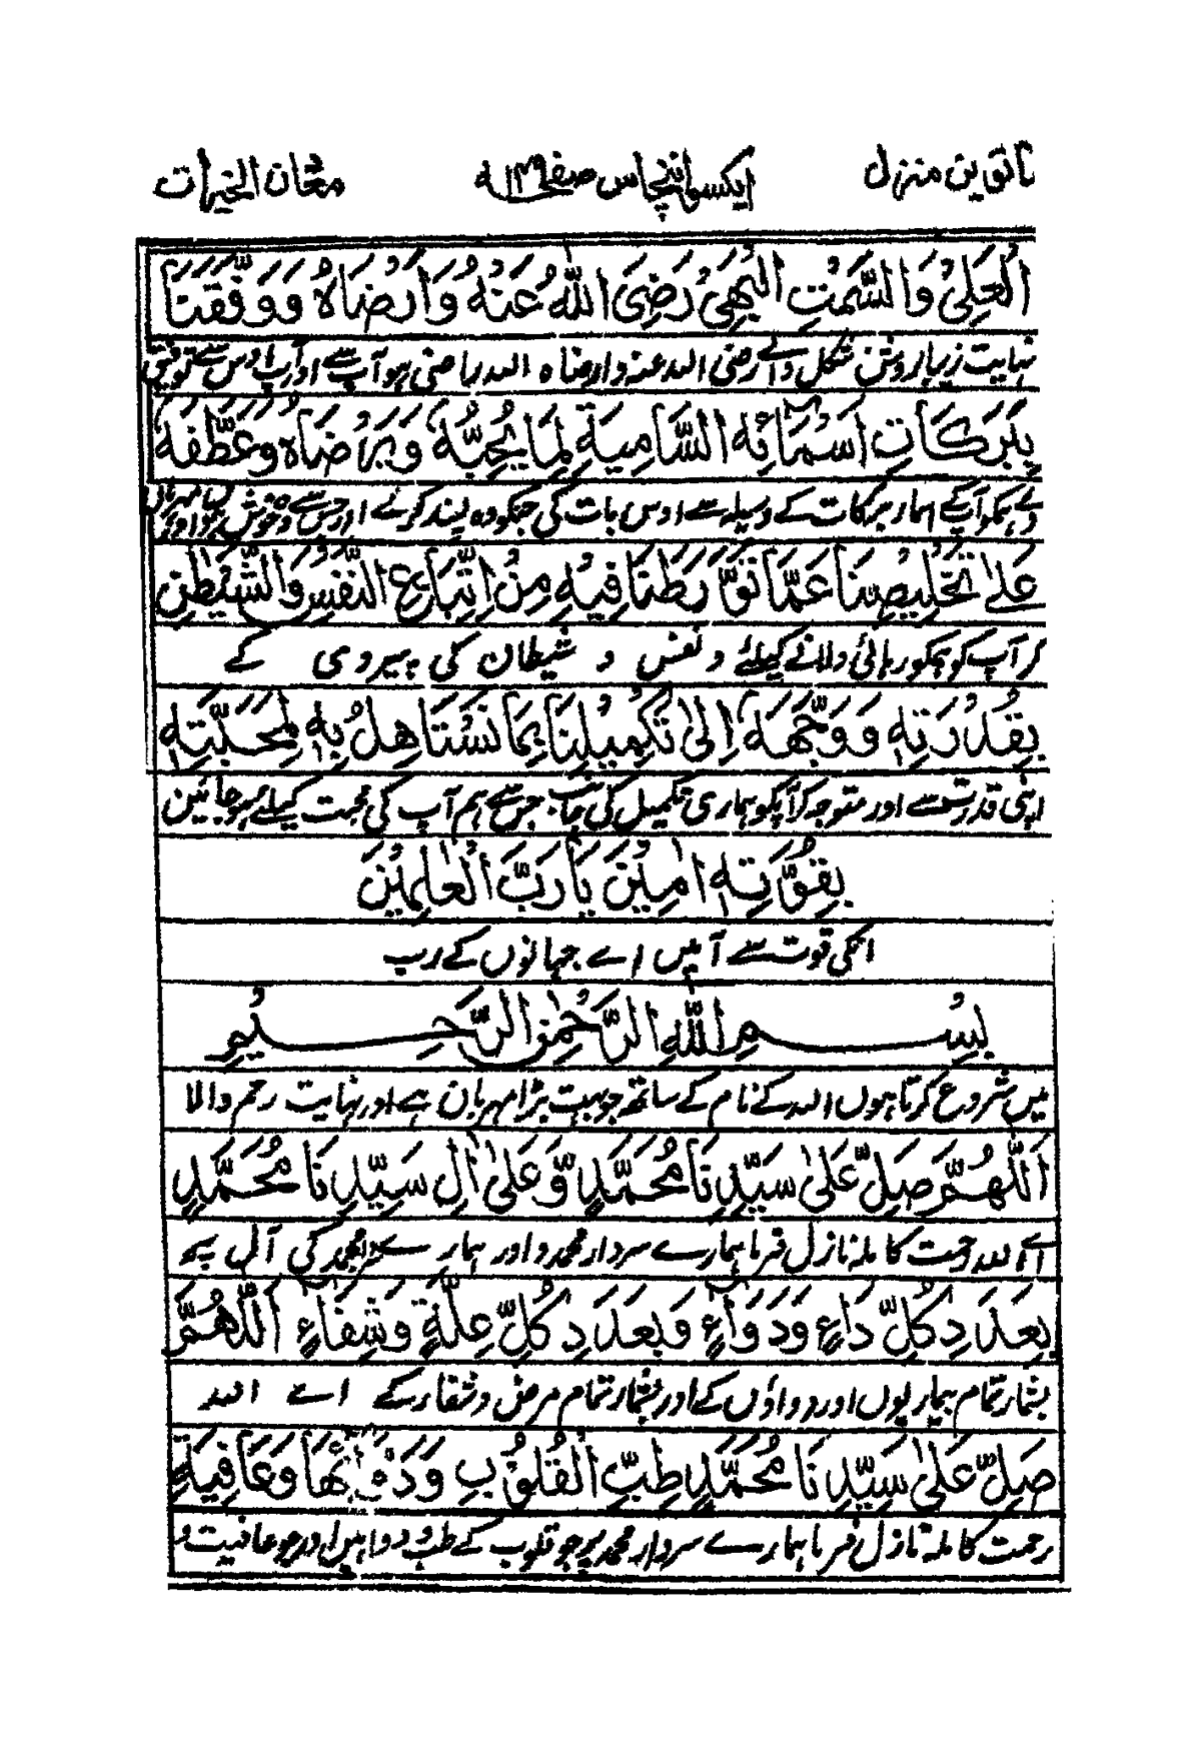 ساتویں منزل ایکسو اننچاس صفحہ ۱۴۹ مغان الخیرات
الْعَلِیْ وَالسَّمْتِ الْبَهِیْ رَضِیَ اللّٰهُ عَنْهُ وَاَرْضَاهُ وَوَفَّقَنَا
نہایت زیبا روشن شکل والے رضی اللہ عنہ وارضاہ اللہ راضی ہو آپ سے اور آپ اوس سے توفیق
بِبَرَكَاتِ اَسْمَائِهِ السَّامِیَةِ لِمَا یُحِبُّهٗ وَیَرْضَاهُ وَعَطَّفَهٗ
دے ہمکو آپکے اسمار برکات کے وسیلہ سے اوس بات کی جسکو وہ پسند کرے اور جس سے وہ خوش ہو اور
عَلٰی تَخْلِیْصِنَا عَمَّا تَوَرَّطْنَا فِیْهِ مِنْ اِتِّبَاعِ النَّفْسِ وَالشَّیْطٰنِ
کر آپ کو ہمکو رہائی دلانے کیلئے و نفس و شیطان کی پیروی کے
بِقُدْرَتِهٖ وَوَجَّهَهٗ اِلٰی تَكْمِیْلِنَا بِمَا نَسْتَاهِلُ بِهٖ لِمَحَبَّتِهٖ
اپنی قدرت سے اور متوجہ کر آپکو ہماری تکمیل کی جانب جس سے ہم آپ کی محبت کیلئے ہوجائیں
بِقُوَّتِهٖ اٰمِیْنَ یَا رَبَّ الْعٰلَمِیْنَ
انکی قوت سے آمین اے جہانوں کے رب
بِسْمِ اللّٰهِ الرَّحْمٰنِ الرَّحِیْمِ
میں شروع کرتا ہوں اللہ کے نام کے ساتھ جو بہت بڑا مہربان ہے اور نہایت رحم والا
اَللّٰهُمَّ صَلِّ عَلٰی سَیِّدِنَا مُحَمَّدٍ وَّعَلٰی اٰلِ سَیِّدِنَا مُحَمَّدٍ
اے اللہ رحمت کاملہ نازل فرما ہمارے سردار محمد و اور ہمارے سردار محمد کی آل پہ
بِعَدَدِ كُلِّ دَاءٍ وَدَوَاءٍ وَبِعَدَدِ كُلِّ عِلَّةٍ وَشِفَاءٍ اَللّٰهُمَّ
بشمار تمام بیماریوں اور دواؤں کے اور بشمار تمام مرض و شفار کے اے اللہ
صَلِّ عَلٰی سَیِّدِنَا مُحَمَّدٍ طِبِّ الْقُلُوْبِ وَدَوَائِهَا وَعَافِیَةِ
رحمت کاملہ نازل فرما ہمارے سردار محمد پر جو قلوب کے طب و دوا ہیں اور جو عافیت و